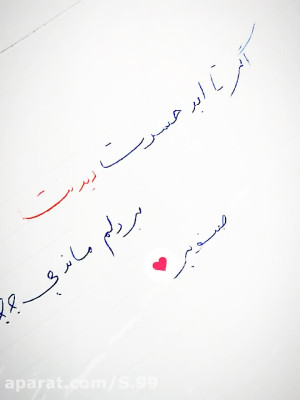 اگر تا ابد حسرت دیدنت
بر دلم ماند چی؟؟؟
صنوبر
aparat.com/S.99